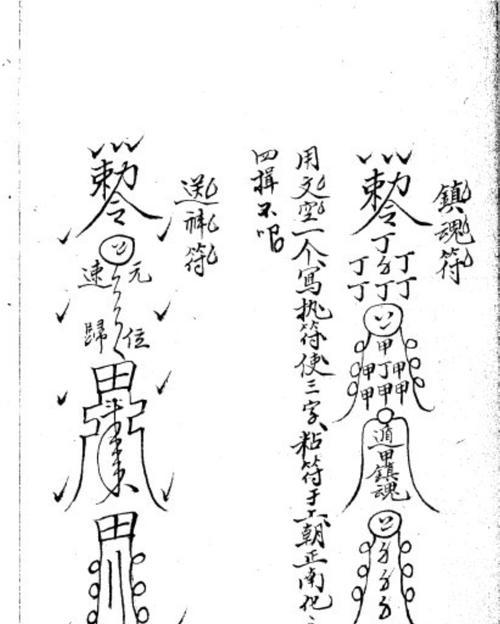 鎮魂符
勅令
丁
丁 丁
丁丁丁
甲
甲丁甲
甲甲甲
遁甲鎮魂
用文空一个寫执符使三字粘符于朝正南化
四揖不唱
送神符
勅令
元速
位歸
田
田